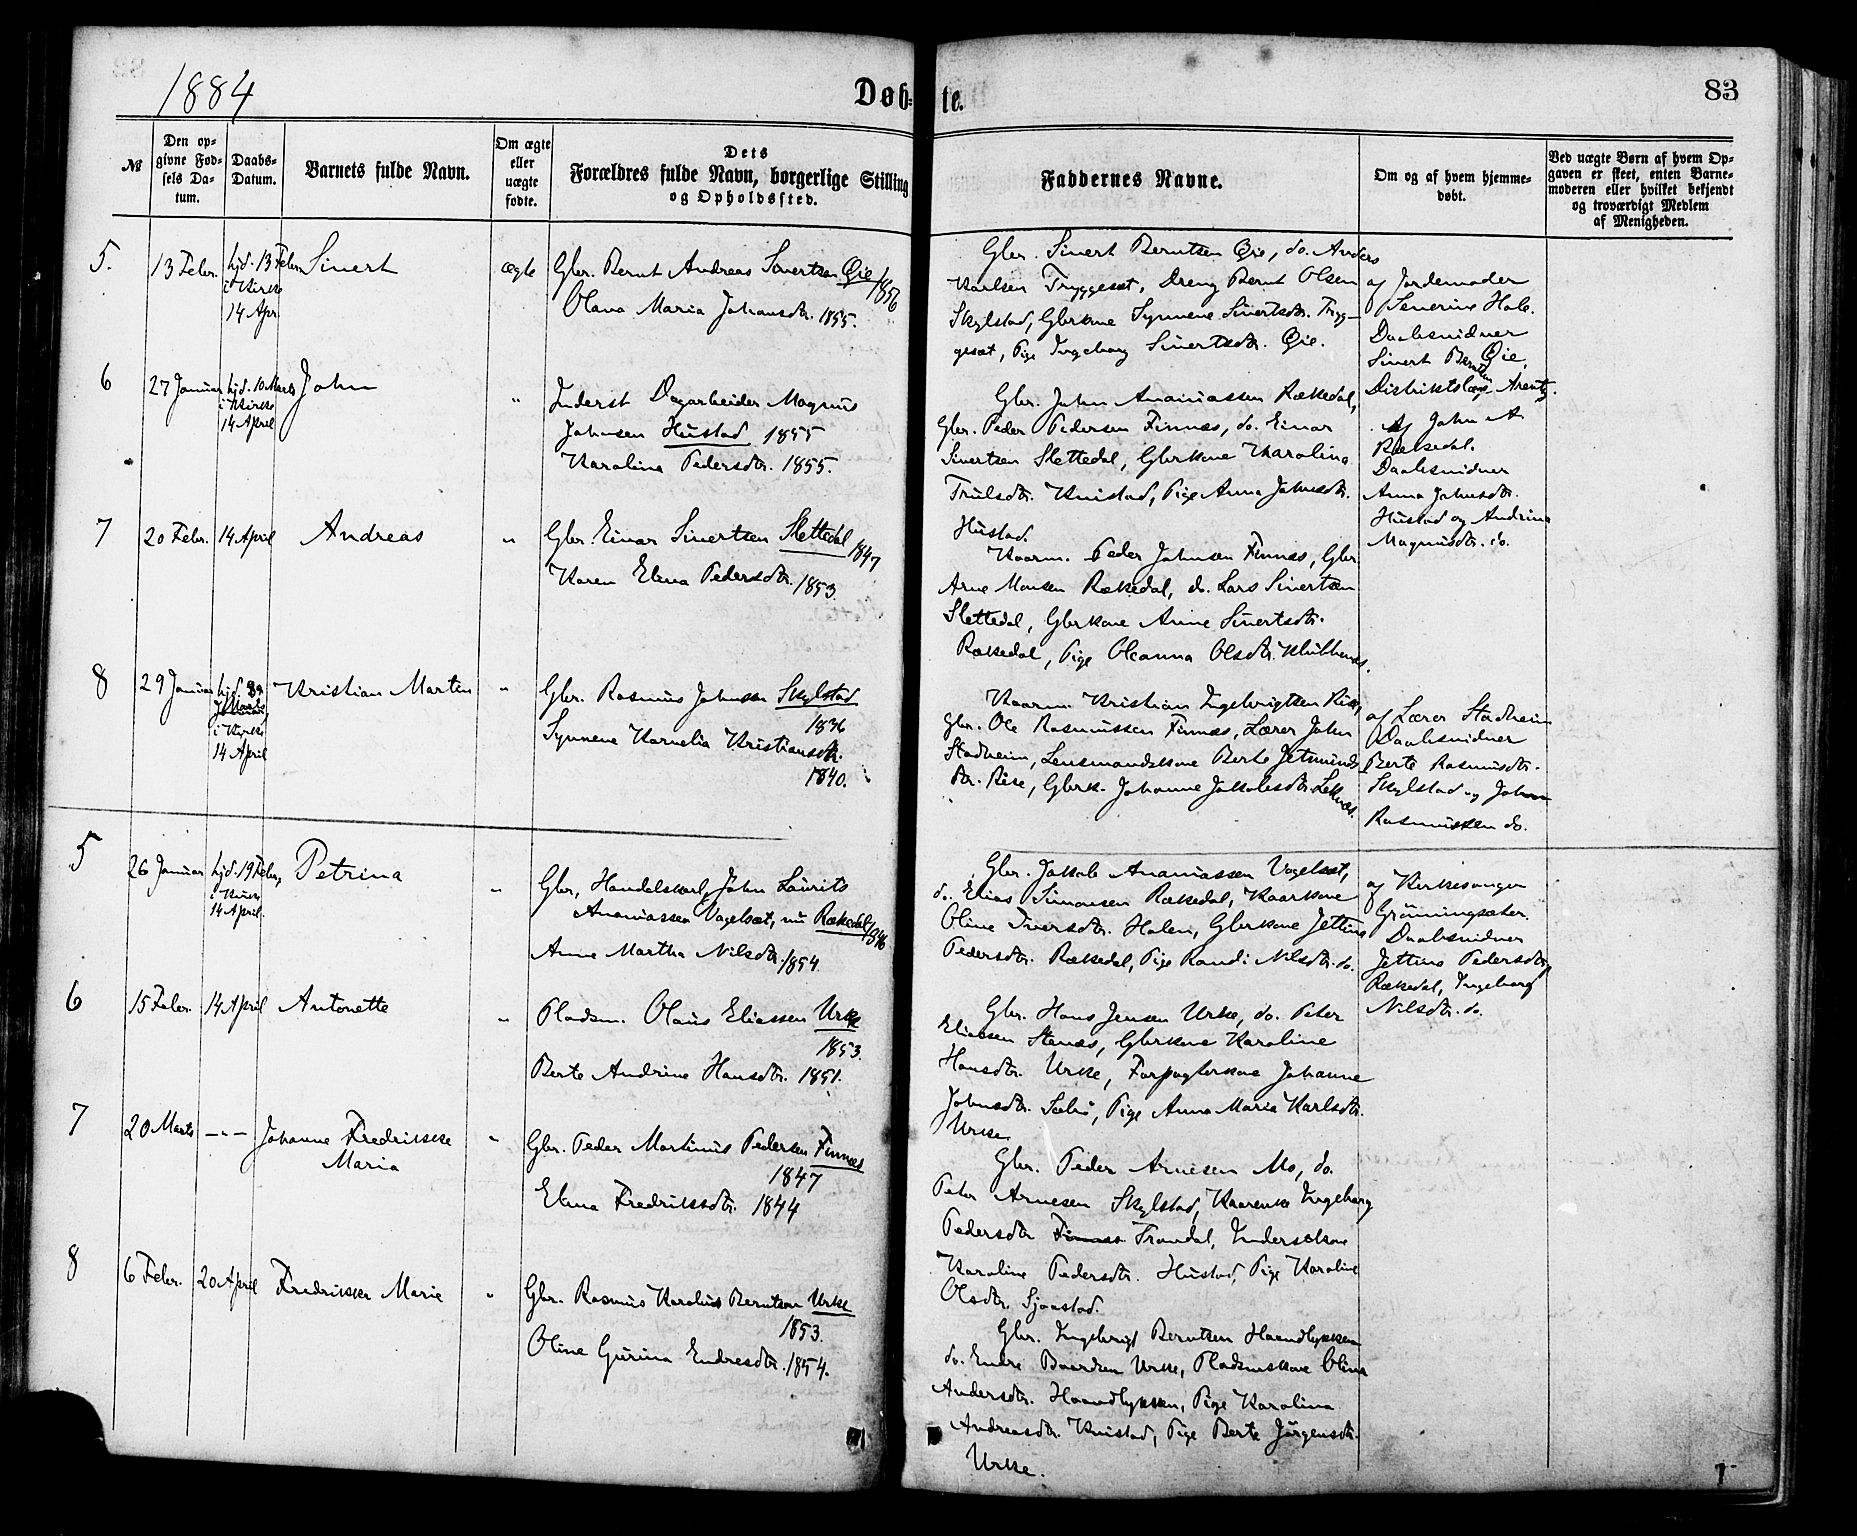 1884
Døb-te.
83
№
Den op-
givne Fød-
sels Da-
tum.
Daabs-
Datum.
Barnets fulde Navn.
Om ægte
eller
uægte
fødte.
Dets
Forældres fulde Navn, borgerlige Stilling
og Opholdssted.
Faddernes Navne.
Om og af hvem hjemme-
døbt.
Ved uægte Børn af hvem Op-
gaven er skeet, enten Barne-
moderen eller hvilket bekjendt
og troværdigt Medlem
af Menigheden.
5.
13 Febr.
hjd. 13 Febr.
i Kirke
14 Apr.
Sivert
ægte
Gbr. Bernt Andreas Sivertsen Øie 1856
Olava Maria Johansdtr. 1855.
Gbr. Sivert Berntsen Øie, do. Anders
Karlsen Tryggesæt, Dreng Bernt Olsen
Skylstad, Gbrkone Synneve Sivertsdtr. Tryg-
gesæt, Pige Ingeborg Sivertsdtr. Øie.
af Jordemoder
Severine Hole.
Daabsvidner
Sivert Berntsen Øie,
Distriktslæge Arentz.
6
27 Januar
hjd. 10 Marts
i Kirke
14 April
John
"
Inderst Dagarbeider Magnus
Johnsen Hustad 1855
Karoline Pedersdtr. 1855.
Gbr. John Ananiassen Rækedal,
Gbr. Peder Pedersen Finnæs, do. Einar
Sivertsen Slettedal, Gbrkone Karolina
Trulsdtr. Knistad, Pige Anna Johnsdtr.
Hustad.
Af John A
Rækedal.
Daabsvidner
Anna Johnsdtr.
Hustad og Andrina
Magnusdtr. do.
7
20 Febr.
14 April
Andreas
"
Gbr. Einar Sivertsen Slettedal 1847
Karen Elena Pedersdtr. 1853.
Kaarm. Peder Johnsen Finnæs, Gbr.
Arne Monsen Rækedal, do. Lars Sivertsen
Slettedal, Gbrkone Anne Sivertsdtr.
Rækedal, Pige Oleanna Olsdtr.
8
29 Januar
hjd.
Marts
i Kirke
14 April
Kristian Martin
"
Gbr. Rasmus Johnsen Skylstad
1836
Synneve Kornelia Kristiansdtr.
1840.
Kaarm. Kristian Ingebrigtsen Rise,
Gbr. Ole Rasmussen Finnæs, Lærer John
Stadheim, Lensmandskone Berte Jetmunds-
dtr. Rise, Gbrk. Johanne Jakobsdtr. Leknæs.
af Lærer Stadheim
Daabsvidner
Berte Rasmusdtr.
Skylstad og Johan
Rasmussen do.
5
26 Januar
hjd. 19 Febr,
i Kirke
14 April.
Petrina
"
Gbr, Handelskarl, John Laurits
Ananiassen Vagelsæt, nu Rækedal 1846
Anne Martha Nilsdtr. 1854.
Gbr. Jakob Ananiassen Vagelsæt,
do. Elias Simonsen Rækedal, Kaarkone
Oline Iversdtr. Holen, Gbrkone Jettine
Pedersdtr. Rækedal, Pige Randi Nilsdtr. do.
af Kirkesanger
Grönningsæter.
Daabsvidner
Jettine Pedersdtr
Rækedal, Ingeborg
Nilsdtr. do.
6
15 Febr.
14 April
Antonette
"
Pladsm. Olaus Eliassen Urke
1853.
Berte Andrine Hansdtr. 1851.
Gbr. Hans Jensen Urke, do. Peter
Eliassen Stenæs, Gbrkone Karoline
Hansdtr. Urke, Forpagterkone Johanne
Johnsdtr. Sæbö, Pige Anne Maria Karlsdtr.
Urke
7
20 Marts
- " -
Johanne Fredrikke
Maria
"
Gbr. Peder Martinus Pedersen Finnæs
1847
Elena Fredriksdtr. 1844
Gbr. Peder Arnesen Mo, do.
Peter Arnesen Skylstad, Kaarenke Ingeborg
Pedersdtr Finnæs Trandal, Inderstkone
Karoline Pedersdtr. Hustad, Pige Karoline
Olsdtr. Sjaastad.
8
6 Febr.
20 April
Fredrikke Marie
"
Gbr. Rasmus Karolius Berntsen Urke
1853.
Oline Gurina Endresdtr. 1854.
Gbr. Ingebrigt Berntsen Haandlykken
do. Endre Baardsen Urke, Pladsmkone Oline
Andersdtr. Haandlykken, Pige Karolina
Andreasdtr. Knistad, Pige Berte Jörgensdtr.
Urke.